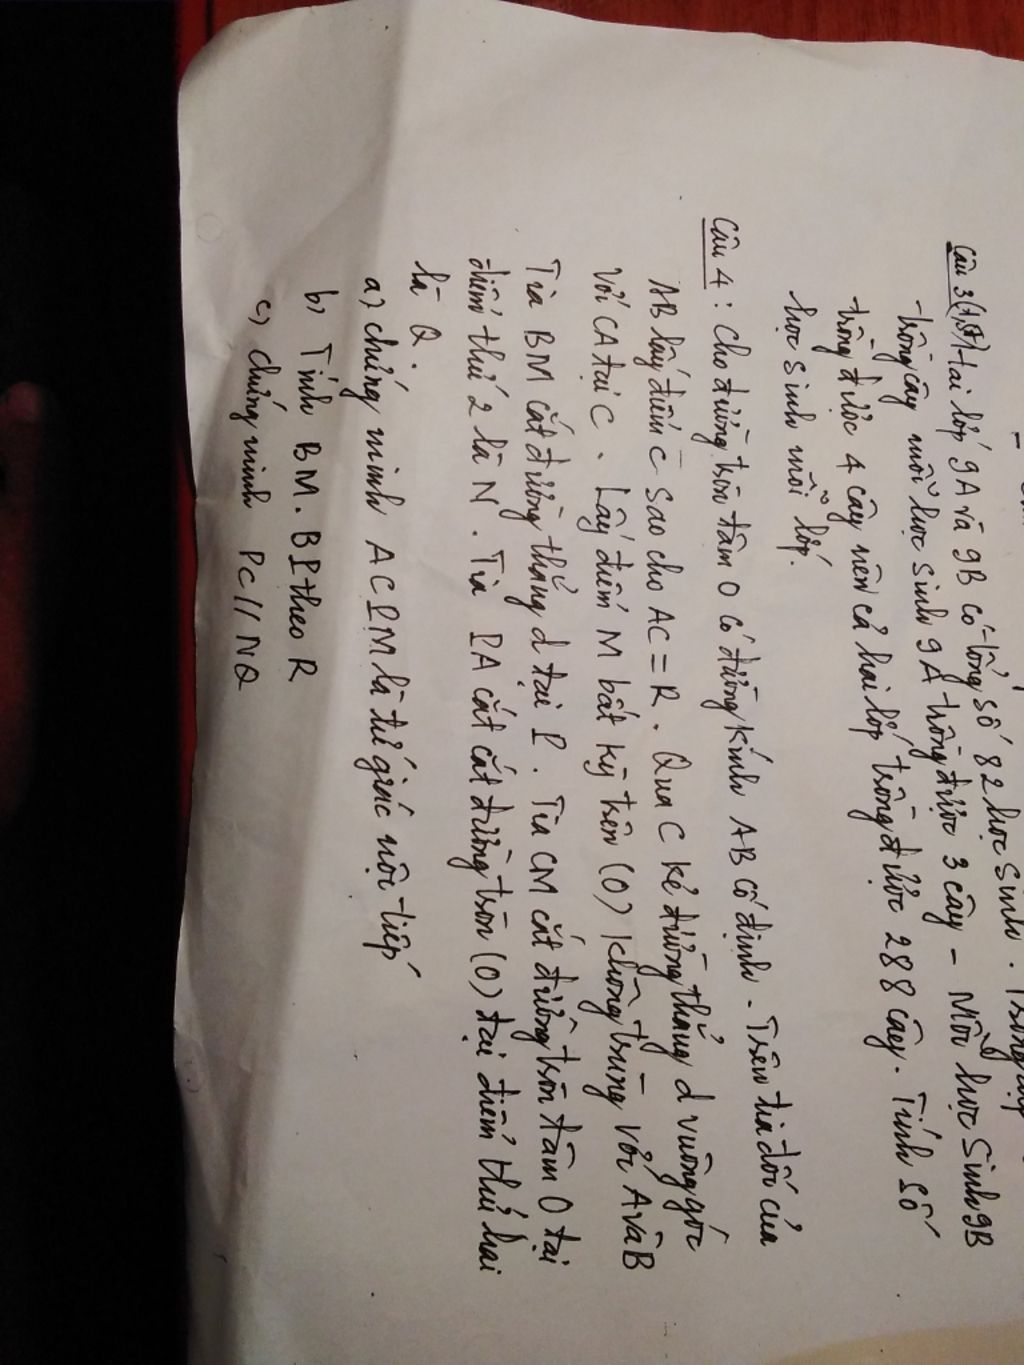 Câu 3(1,5đ) tại lớp 9A và 9B có tổng số 82 học sinh.
trồng cây mỗi học sinh 9A trồng được 3 cây - Mỗi học sinh 9B
trồng được 4 cây nên cả hai lớp trồng được 288 cây. Tính số
học sinh mỗi lớp.
Câu 4: Cho đường tròn tâm O có đường kính AB cố định. Trên tia đối của
AB lấy điểm C sao cho AC = R. Qua C kẻ đường thẳng d vuông góc
với CA tại C. Lấy điểm M bất kỳ trên (O) không trùng với A và B
Tia BM cắt đường thẳng d tại P. Tia CM cắt đường tròn tâm O tại
điểm thứ 2 là N. Tia PA cắt cắt đường tròn (O) tại điểm thứ hai
là Q.
a) chứng minh ACPM là tứ giác nội tiếp
b) Tính BM. BP theo R
c) chứng minh PC // NQ